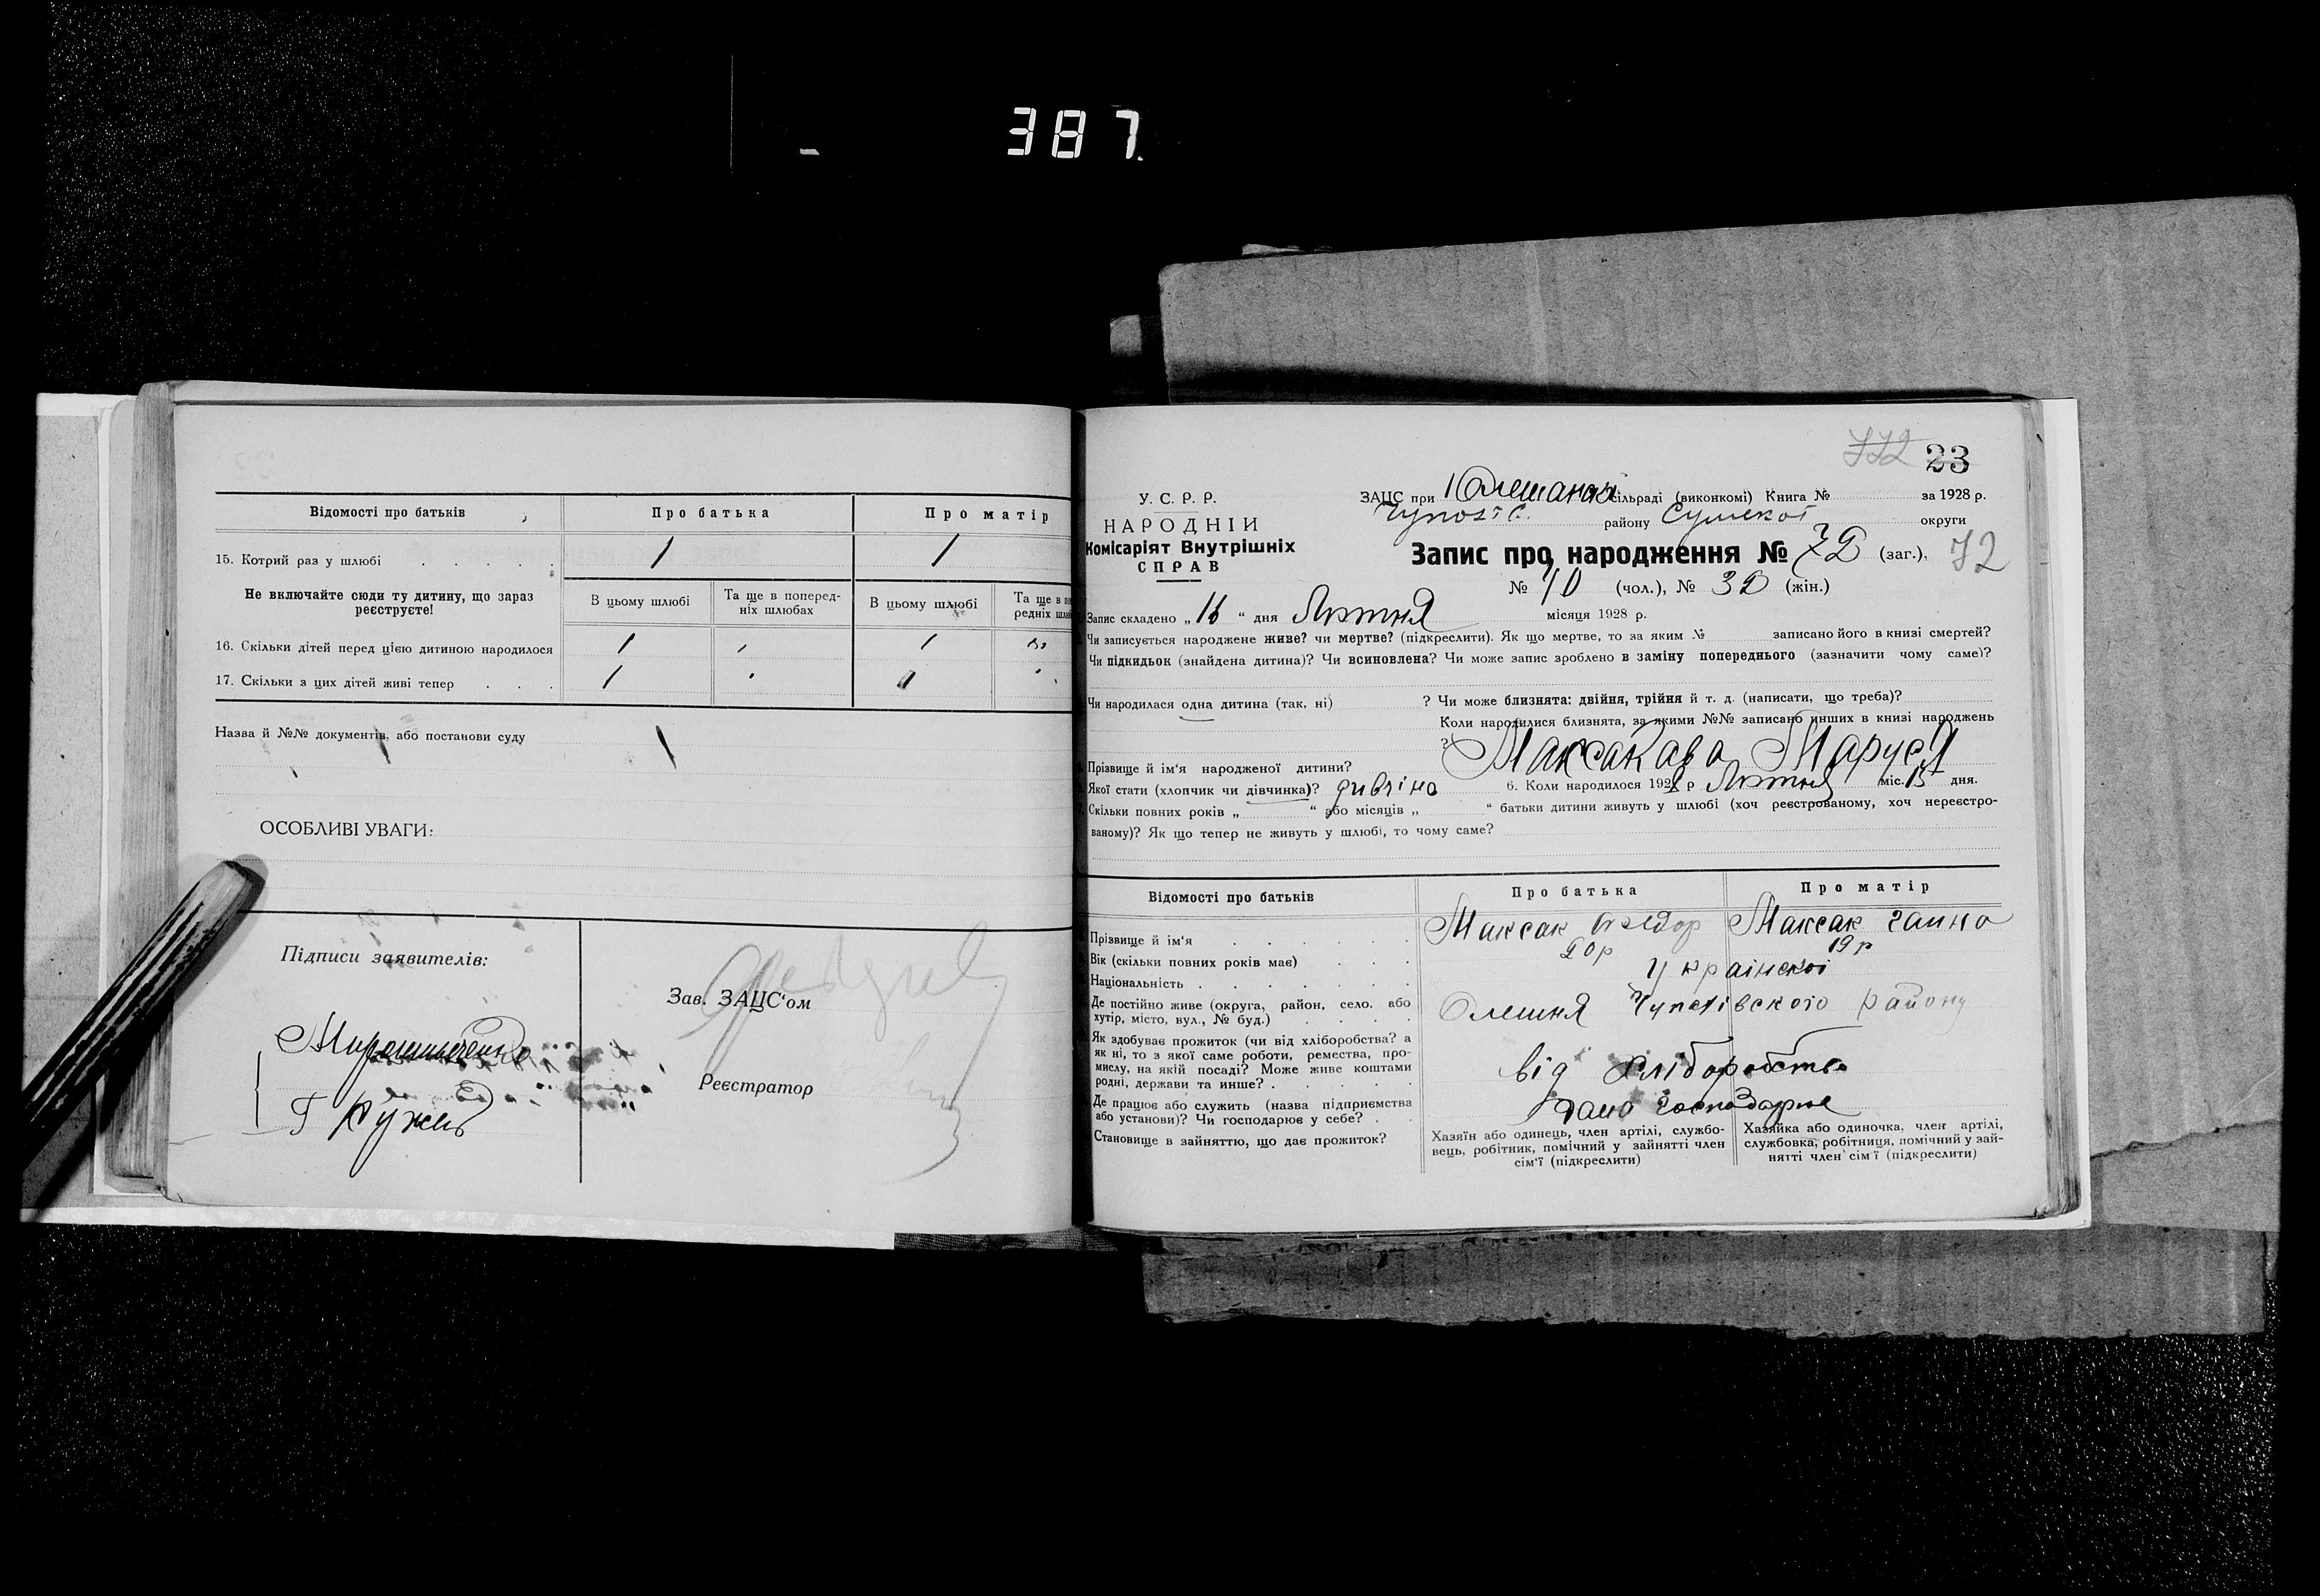 387.
Відомості про батьків
Про батька
Про матір
15. Котрий раз у шлюбі
1
1
Не включайте сюди ту дитину, що зараз
реєструєте!
В цьому шлюбі
Та ще в поперед-
ніх шлюбах
В цьому шлюбі
Та ще в
редніх
16. Скільки дітей перед цією дитиною народилося
1
1
17. Скільки з цих дітей живі тепер
1
1
Назва й №№ документів, або постанови суду
ОСОБЛИВІ УВАГИ:
Підписи заявителів:
Мирошниченко
Г Кужель
Зав. ЗАЦС‘ом
Реєстратор
772 23
У. С. Р. Р.
НАРОДНІЙ
Комісаріят Внутрішніх
СПРАВ
ЗАЦС при Олешанськ сільраді (виконкомі) Книга № за 1928 р.
району Сумської округи
Запис про народження № 72 (заг.), 72
№ 40 (чол.), № 32 (жін.)
Запис складено „ 16 “ дня Лютня місяця 1928 р.
Чи записується народжене живе? чи мертве? (підкреслити). Як що мертве, то за яким № записано його в книзі смертей?
Чи підкидьок (знайдена дитина)? Чи всиновлена? Чи може запис зроблено в заміну попереднього (зазначити чому саме)?
Чи народилася одна дитина (так, ні) ? Чи може близнята: двійня, трійня й т. д. (написати, що треба)?
Коли народилися близнята, за якими №№ записано инших в книзі народжень
?
Прізвище й ім‘я народженої дитини? Максакова Маруся
Якої статі (хлопчик чи дівчинка)? дивчіна 6. Коли народилося 1928 р Лютня міс. 15 дня.
Скільки повних років „ “ або місяців „ “ батьки дитини живуть у шлюбі (хоч реєстрованому, хоч нереєстро-
ваному)? Як що тепер не живуть у шлюбі, то чому саме?
Відомості про батьків
Про батька
Про матір
Прізвище й ім‘я
Максак
Максак ганна
Вік (скільки повних років має)
20 р
19 р
Національність
Українскої
Де постійно живе (округа, район, село, або
хутір, місто, вул., № буд.)
Олешня Чупахівского району
Як здобуває прожиток (чи від хліборобства? а
як ні, то з якої саме роботи, ремества, про-
мислу, на якій посаді? Може живе коштами
родні, держави та инше?
від хліборобства
Де працює або служить (назва підприємства
або установи)? Чи господарює у себе?
Становище в зайняттю, що дає прожиток?
Хазяїн або одинець, член артілі, службо-
вець, робітник, помічний у зайнятті член
сім‘ї (підкреслити)
Хазяйка або одиночка, член артілі,
службовка, робітниця, помічний у зай-
нятті член сім‘ї (підкреслити)